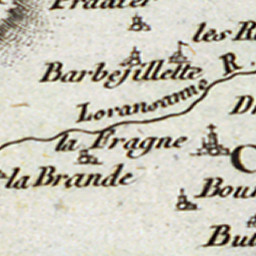 les R
Barbefillette
R.
Loransanne
la Fragne
la Brande
Bou
Bu